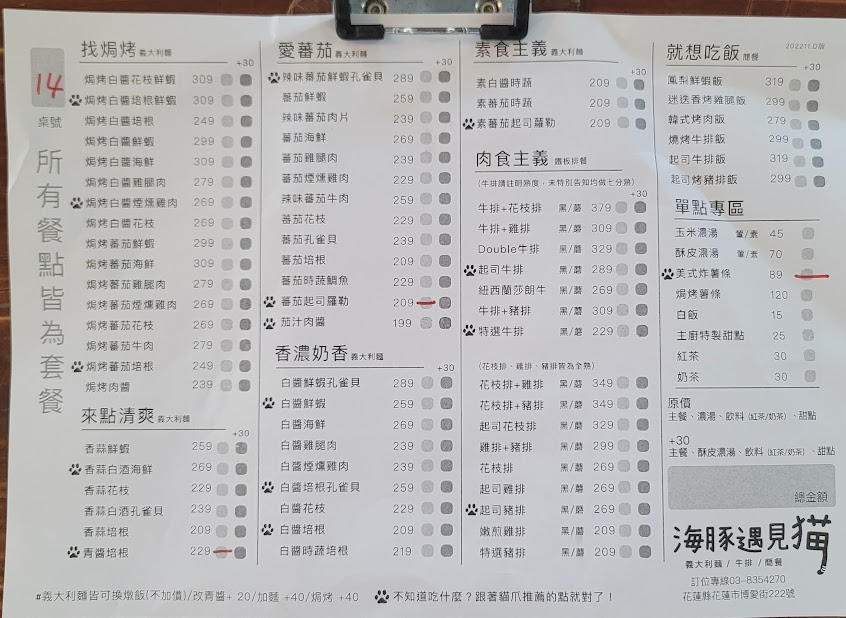 14
桌號
所有餐點皆為套餐
找焗烤 義大利麵
+30
焗烤白醬花枝鮮蝦 309
焗烤白醬培根鮮蝦 309
焗烤白醬培根 249
焗烤白醬鮮蝦 299
焗烤白醬海鮮 309
焗烤白醬雞腿肉 279
焗烤白醬煙燻雞肉 269
焗烤白醬花枝 269
焗烤蕃茄鮮蝦 299
焗烤蕃茄海鮮 309
焗烤蕃茄雞腿肉 279
焗烤蕃茄煙燻雞肉 269
焗烤蕃茄花枝 269
焗烤蕃茄牛肉 279
焗烤蕃茄培根 249
焗烤肉醬 239
來點清爽 義大利麵
+30
香蒜鮮蝦 259
香蒜白酒海鮮 269
香蒜花枝 229
香蒜白酒孔雀貝 239
香蒜培根 209
青醬培根 229
愛蕃茄 義大利麵
+30
辣味蕃茄鮮蝦孔雀貝 289
蕃茄鮮蝦 259
辣味蕃茄肉片 239
蕃茄海鮮 269
蕃茄雞腿肉 239
蕃茄煙燻雞肉 229
辣味蕃茄牛肉 259
蕃茄花枝 229
蕃茄孔雀貝 239
蕃茄培根 209
蕃茄時蔬鯛魚 229
蕃茄起司羅勒 209
茄汁肉醬 199
香濃奶香 義大利麵
+30
白醬鮮蝦孔雀貝 289
白醬鮮蝦 259
白醬海鮮 269
白醬雞腿肉 239
白醬煙燻雞肉 239
白醬培根孔雀貝 259
白醬花枝 229
白醬培根 209
白醬時蔬培根 219
素食主義 義大利麵
+30
素白醬時蔬 209
素蕃茄時蔬 209
素蕃茄起司羅勒 209
肉食主義 鐵板排餐
(牛排請註明熟度，未特別告知均做七分熟)
+30
牛排+花枝排 黑/蘑 379
牛排+雞排 黑/蘑 309
Double牛排 黑/蘑 329
起司牛排 黑/蘑 289
紐西蘭莎朗牛 黑/蘑 269
牛排+豬排 黑/蘑 309
特選牛排 黑/蘑 229
(花枝排、雞排、豬排皆為全熟)
花枝排+雞排 黑/蘑 349
花枝排+豬排 黑/蘑 349
起司花枝排 黑/蘑 329
雞排+豬排 黑/蘑 299
花枝排 黑/蘑 269
起司雞排 黑/蘑 269
起司豬排 黑/蘑 269
嫩煎雞排 黑/蘑 209
特選豬排 黑/蘑 209
就想吃飯 簡餐
202211.D版
+30
鳳梨鮮蝦飯 319
迷迭香烤雞腿飯 299
韓式烤肉飯 279
燒烤牛排飯 299
起司牛排飯 319
起司烤豬排飯 299
單點專區
玉米濃湯 葷/素 45
酥皮濃湯 葷/素 70
美式炸薯條 89
焗烤薯條 120
白飯 15
主廚特製甜點 25
紅茶 30
奶茶 30
原價
主餐、濃湯、飲料(紅茶/奶茶)、甜點
+30
主餐、酥皮濃湯、飲料(紅茶/奶茶)、甜點
總金額
海豚遇見貓
義大利麵 / 牛排 / 簡餐
訂位專線03-8354270
花蓮縣花蓮市博愛街222號
#義大利麵皆可換燉飯(不加價)/改青醬+ 20/加麵 +40/焗烤 +40
不知道吃什麼？跟著貓爪推薦的點就對了！